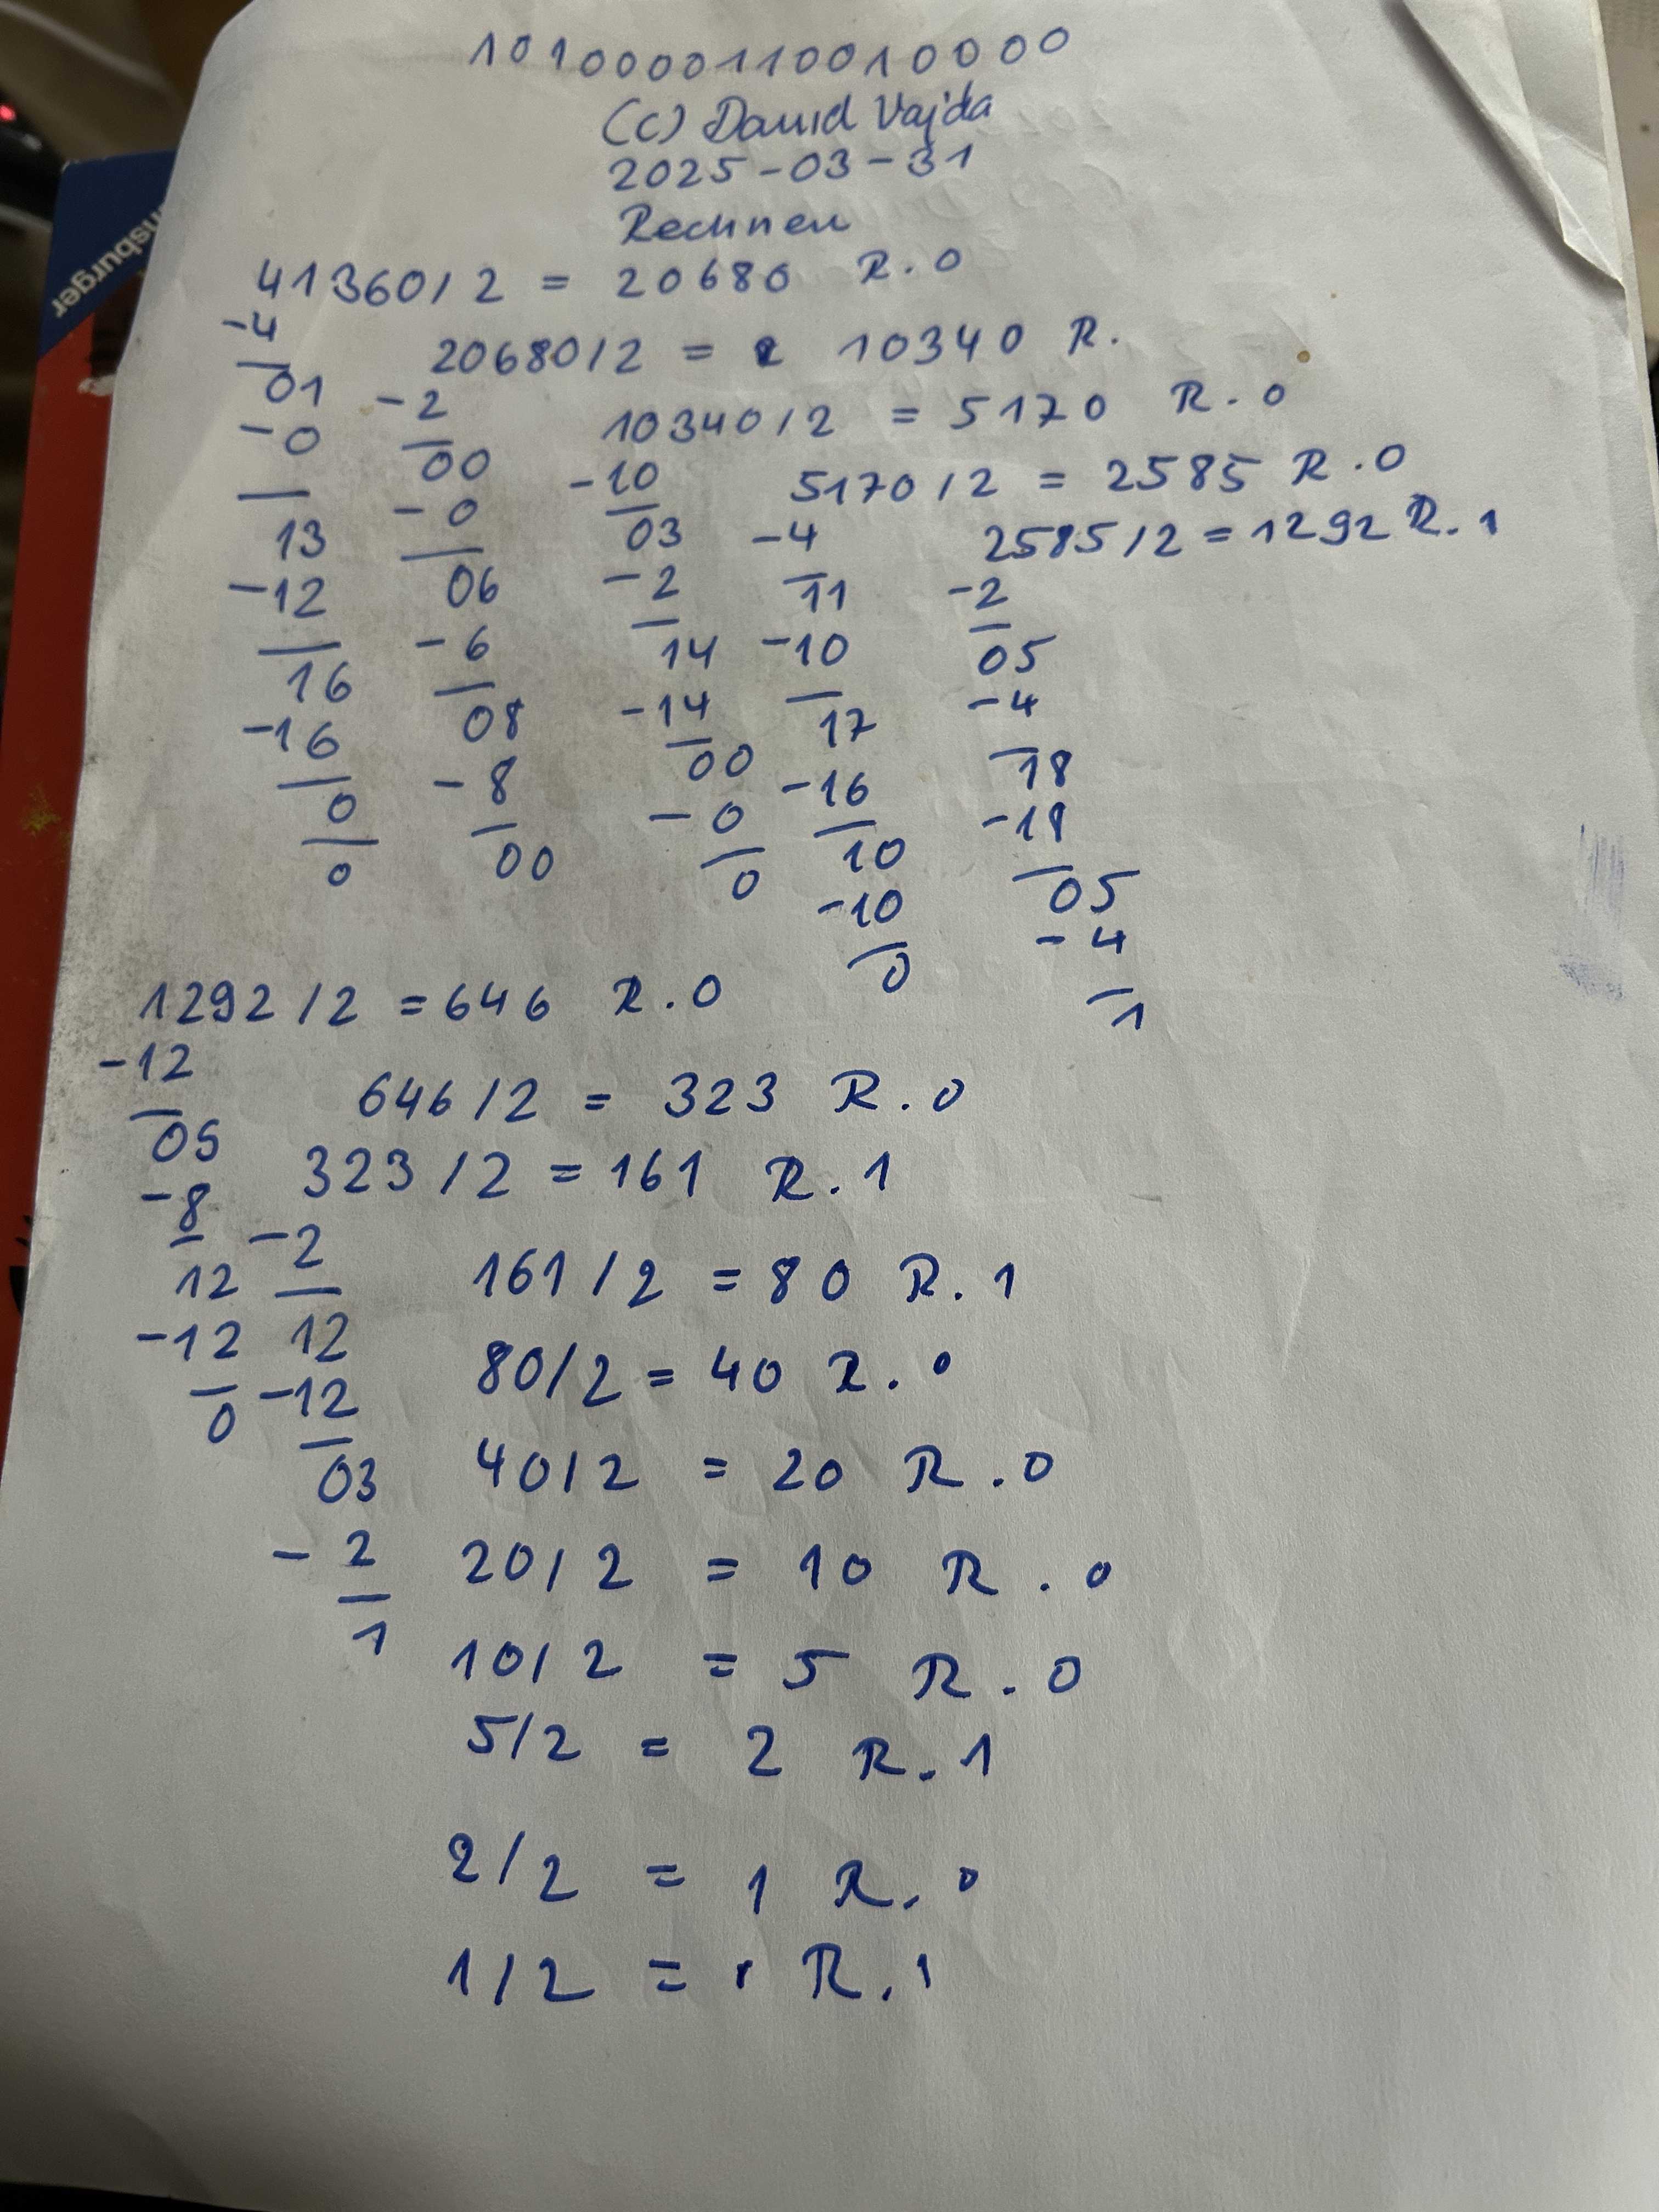 1010000110010000
(c) David Vajda
2025-03-31
Rechnen
41360/2 = 20680 R.0
-4
01
-0
13
-12
16
-16
0
0
20680/2 = 10340 R.
-2
00
-0
06
-6
08
-8
00
10340/2 = 5170 R.0
-10
03
-2
14
-14
00
-0
0
5170/2 = 2585 R.0
-4
11
-10
17
-16
10
-10
0
2585/2 = 1292 R.1
-2
05
-4
18
-18
05
-4
1
1292/2 = 646 R.0
-12
09
-8
12
-12
0
646/2 = 323 R.0
323/2 = 161 R.1
-2
12
-12
03
-2
1
161/2 = 80 R.1
80/2 = 40 R.0
40/2 = 20 R.0
20/2 = 10 R.0
10/2 = 5 R.0
5/2 = 2 R.1
2/2 = 1 R.0
1/2 = R.1